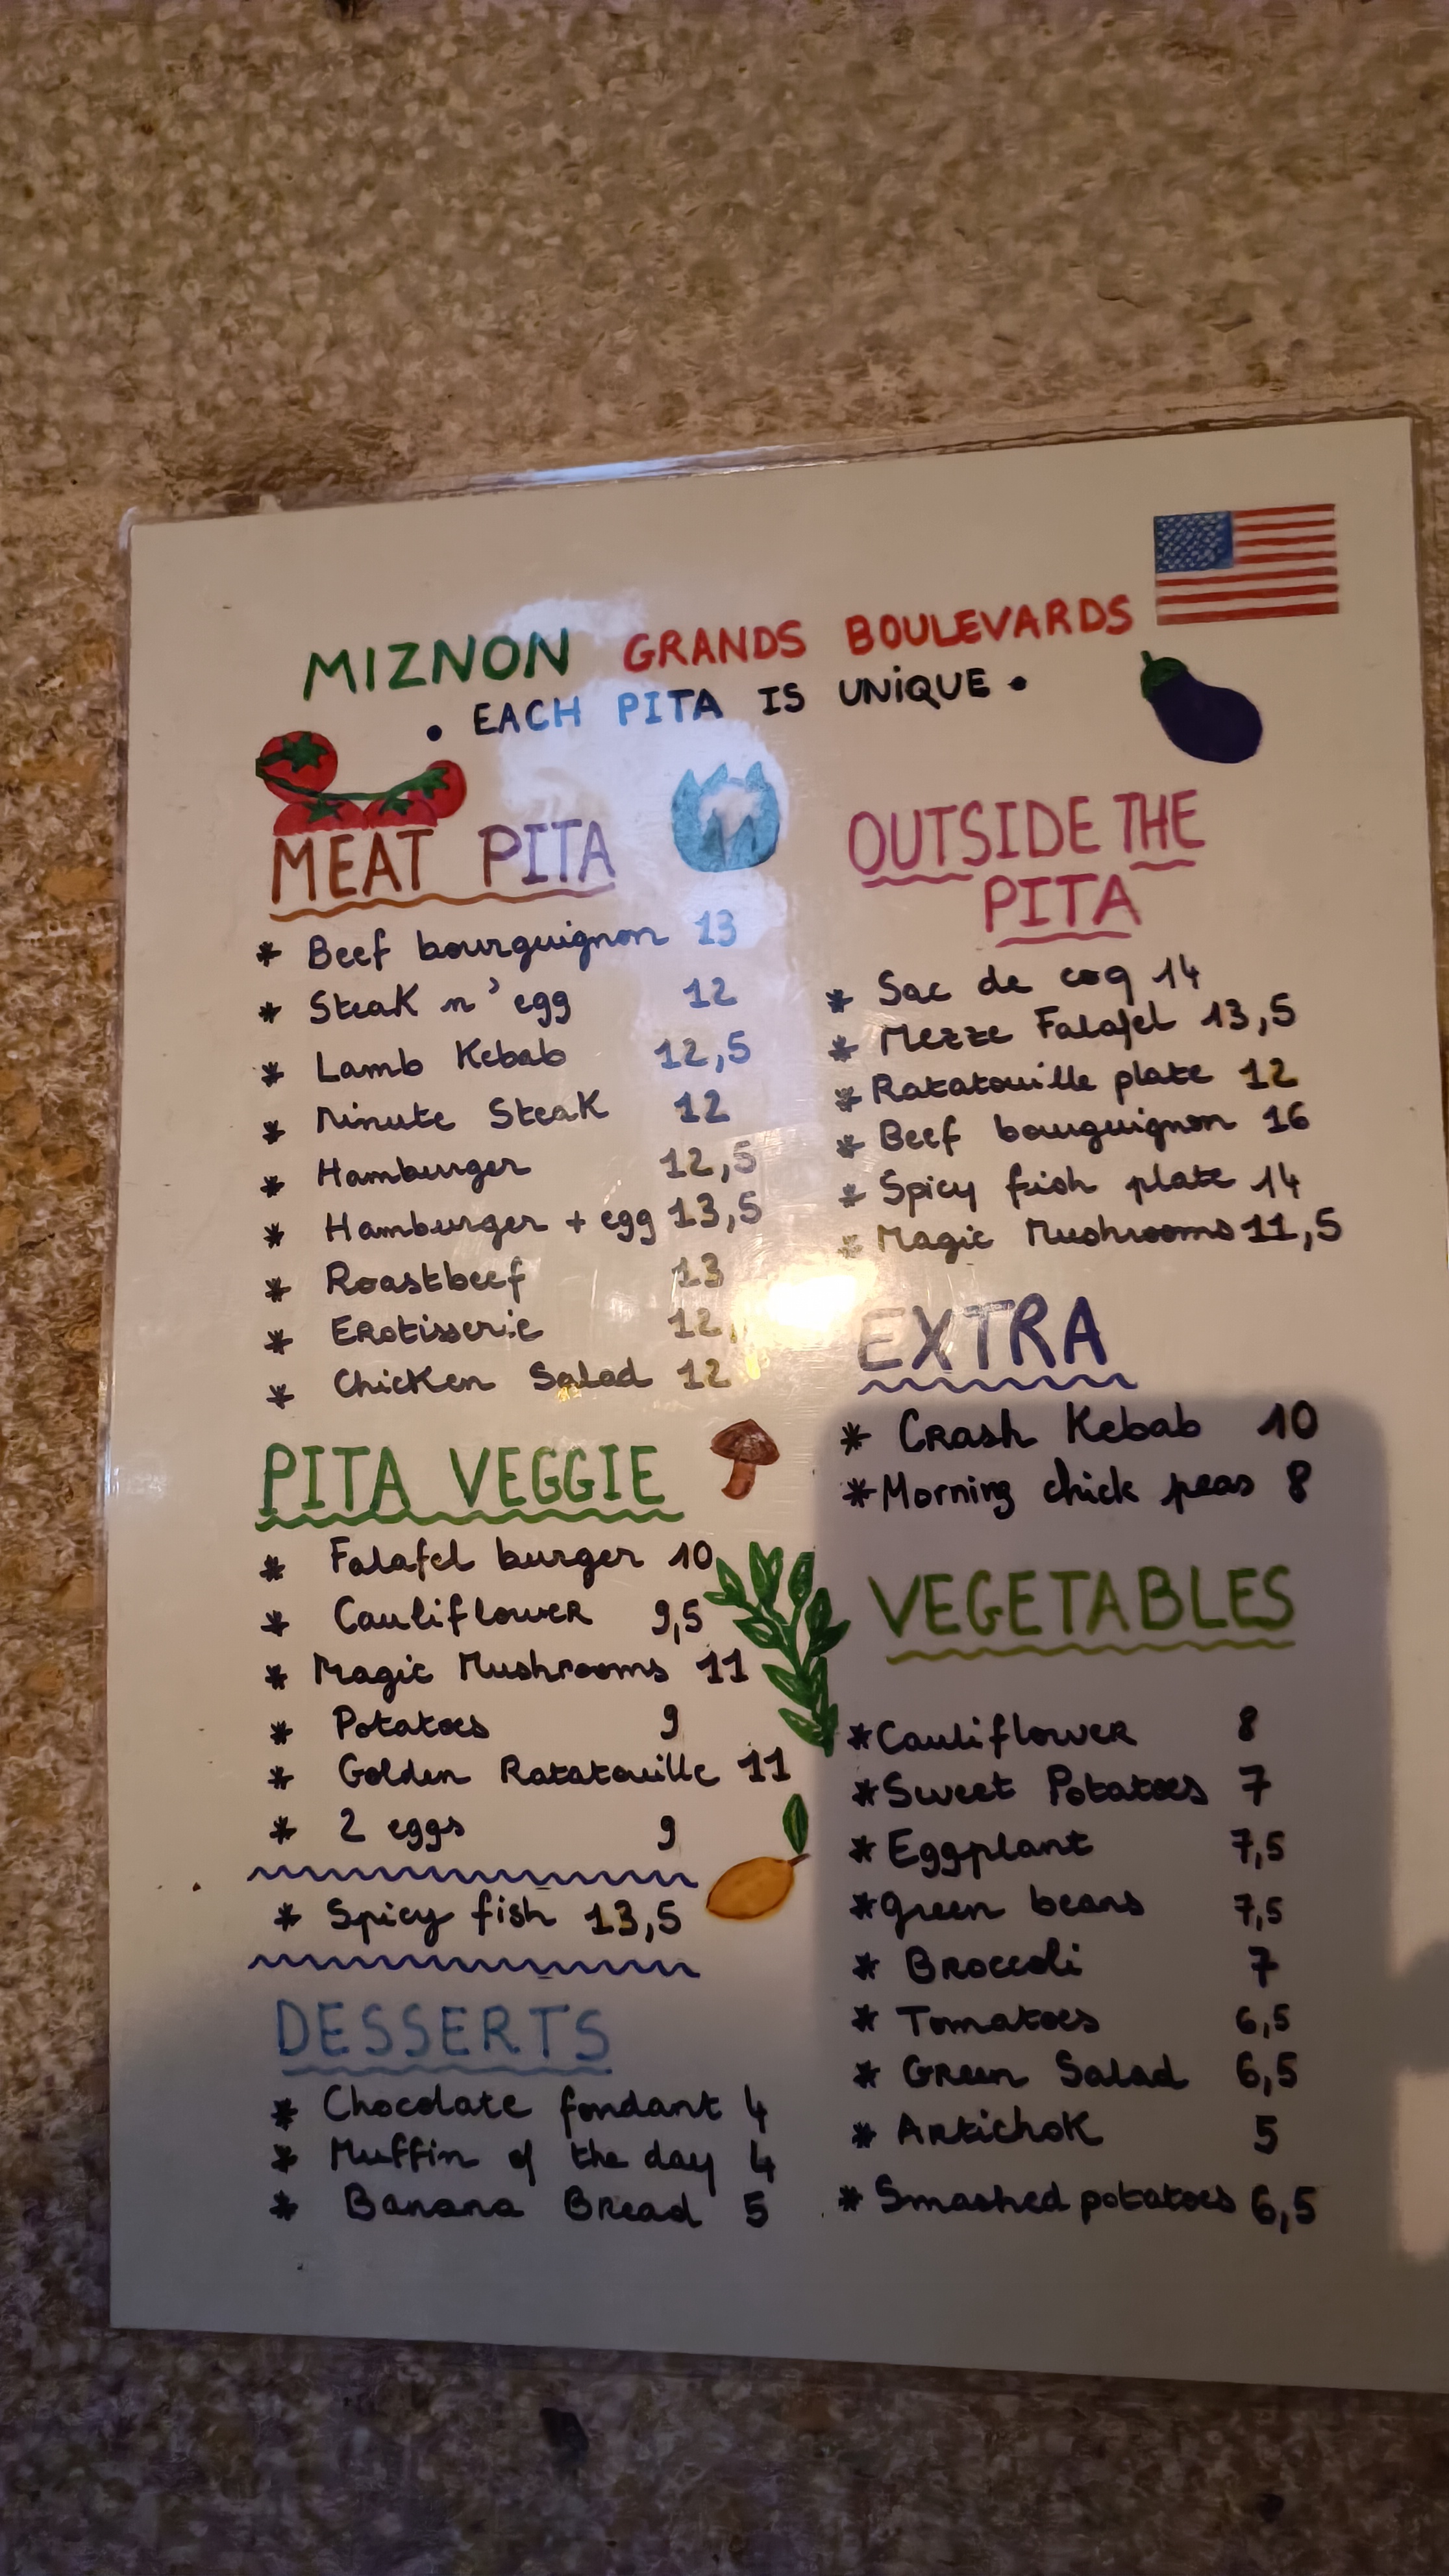 MIZNON GRANDS BOULEVARDS
• EACH PITA IS UNIQUE •
MEAT PITA
* Beef bourguignon 13
* Steak n' egg 12
* Lamb Kebab 12,5
* Minute Steak 12
* Hamburger 12,5
* Hamburger + egg 13,5
* Roastbeef 13
* Erotisserie 12,
* Chicken Salad 12
PITA VEGGIE
* Falafel burger 10
* Cauliflower 9,5
* Magic Mushrooms 11
* Potatoes 9
* Golden Ratatouille 11
* 2 eggs 9
* Spicy fish 13,5
DESSERTS
* Chocolate fondant 4
* Muffin of the day 4
* Banana Bread 5
OUTSIDE THE
PITA
* Sac de coq 14
* Mezze Falafel 13,5
* Ratatouille plate 12
* Beef bouguignon 16
* Spicy fish plate 14
* Magic Mushrooms 11,5
EXTRA
* Crash Kebab 10
* Morning chick peas 8
VEGETABLES
* Cauliflower 8
* Sweet Potatoes 7
* Eggplant 7,5
* green beans 7,5
* Broccoli 7
* Tomatoes 6,5
* Green Salad 6,5
* Artichok 5
* Smashed potatoes 6,5